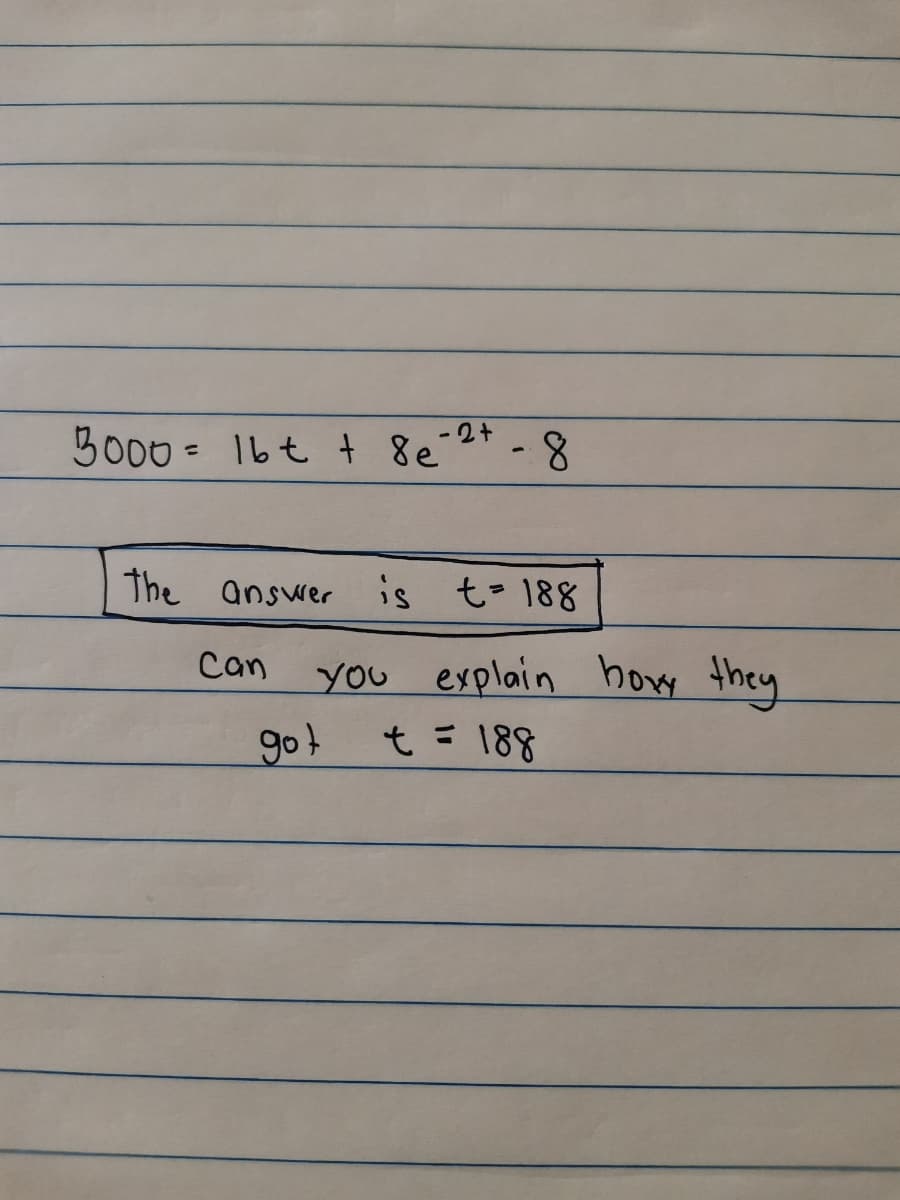 3000 = 16t + 8e^-2t - 8
The answer is t = 188
Can you explain how they
got t = 188